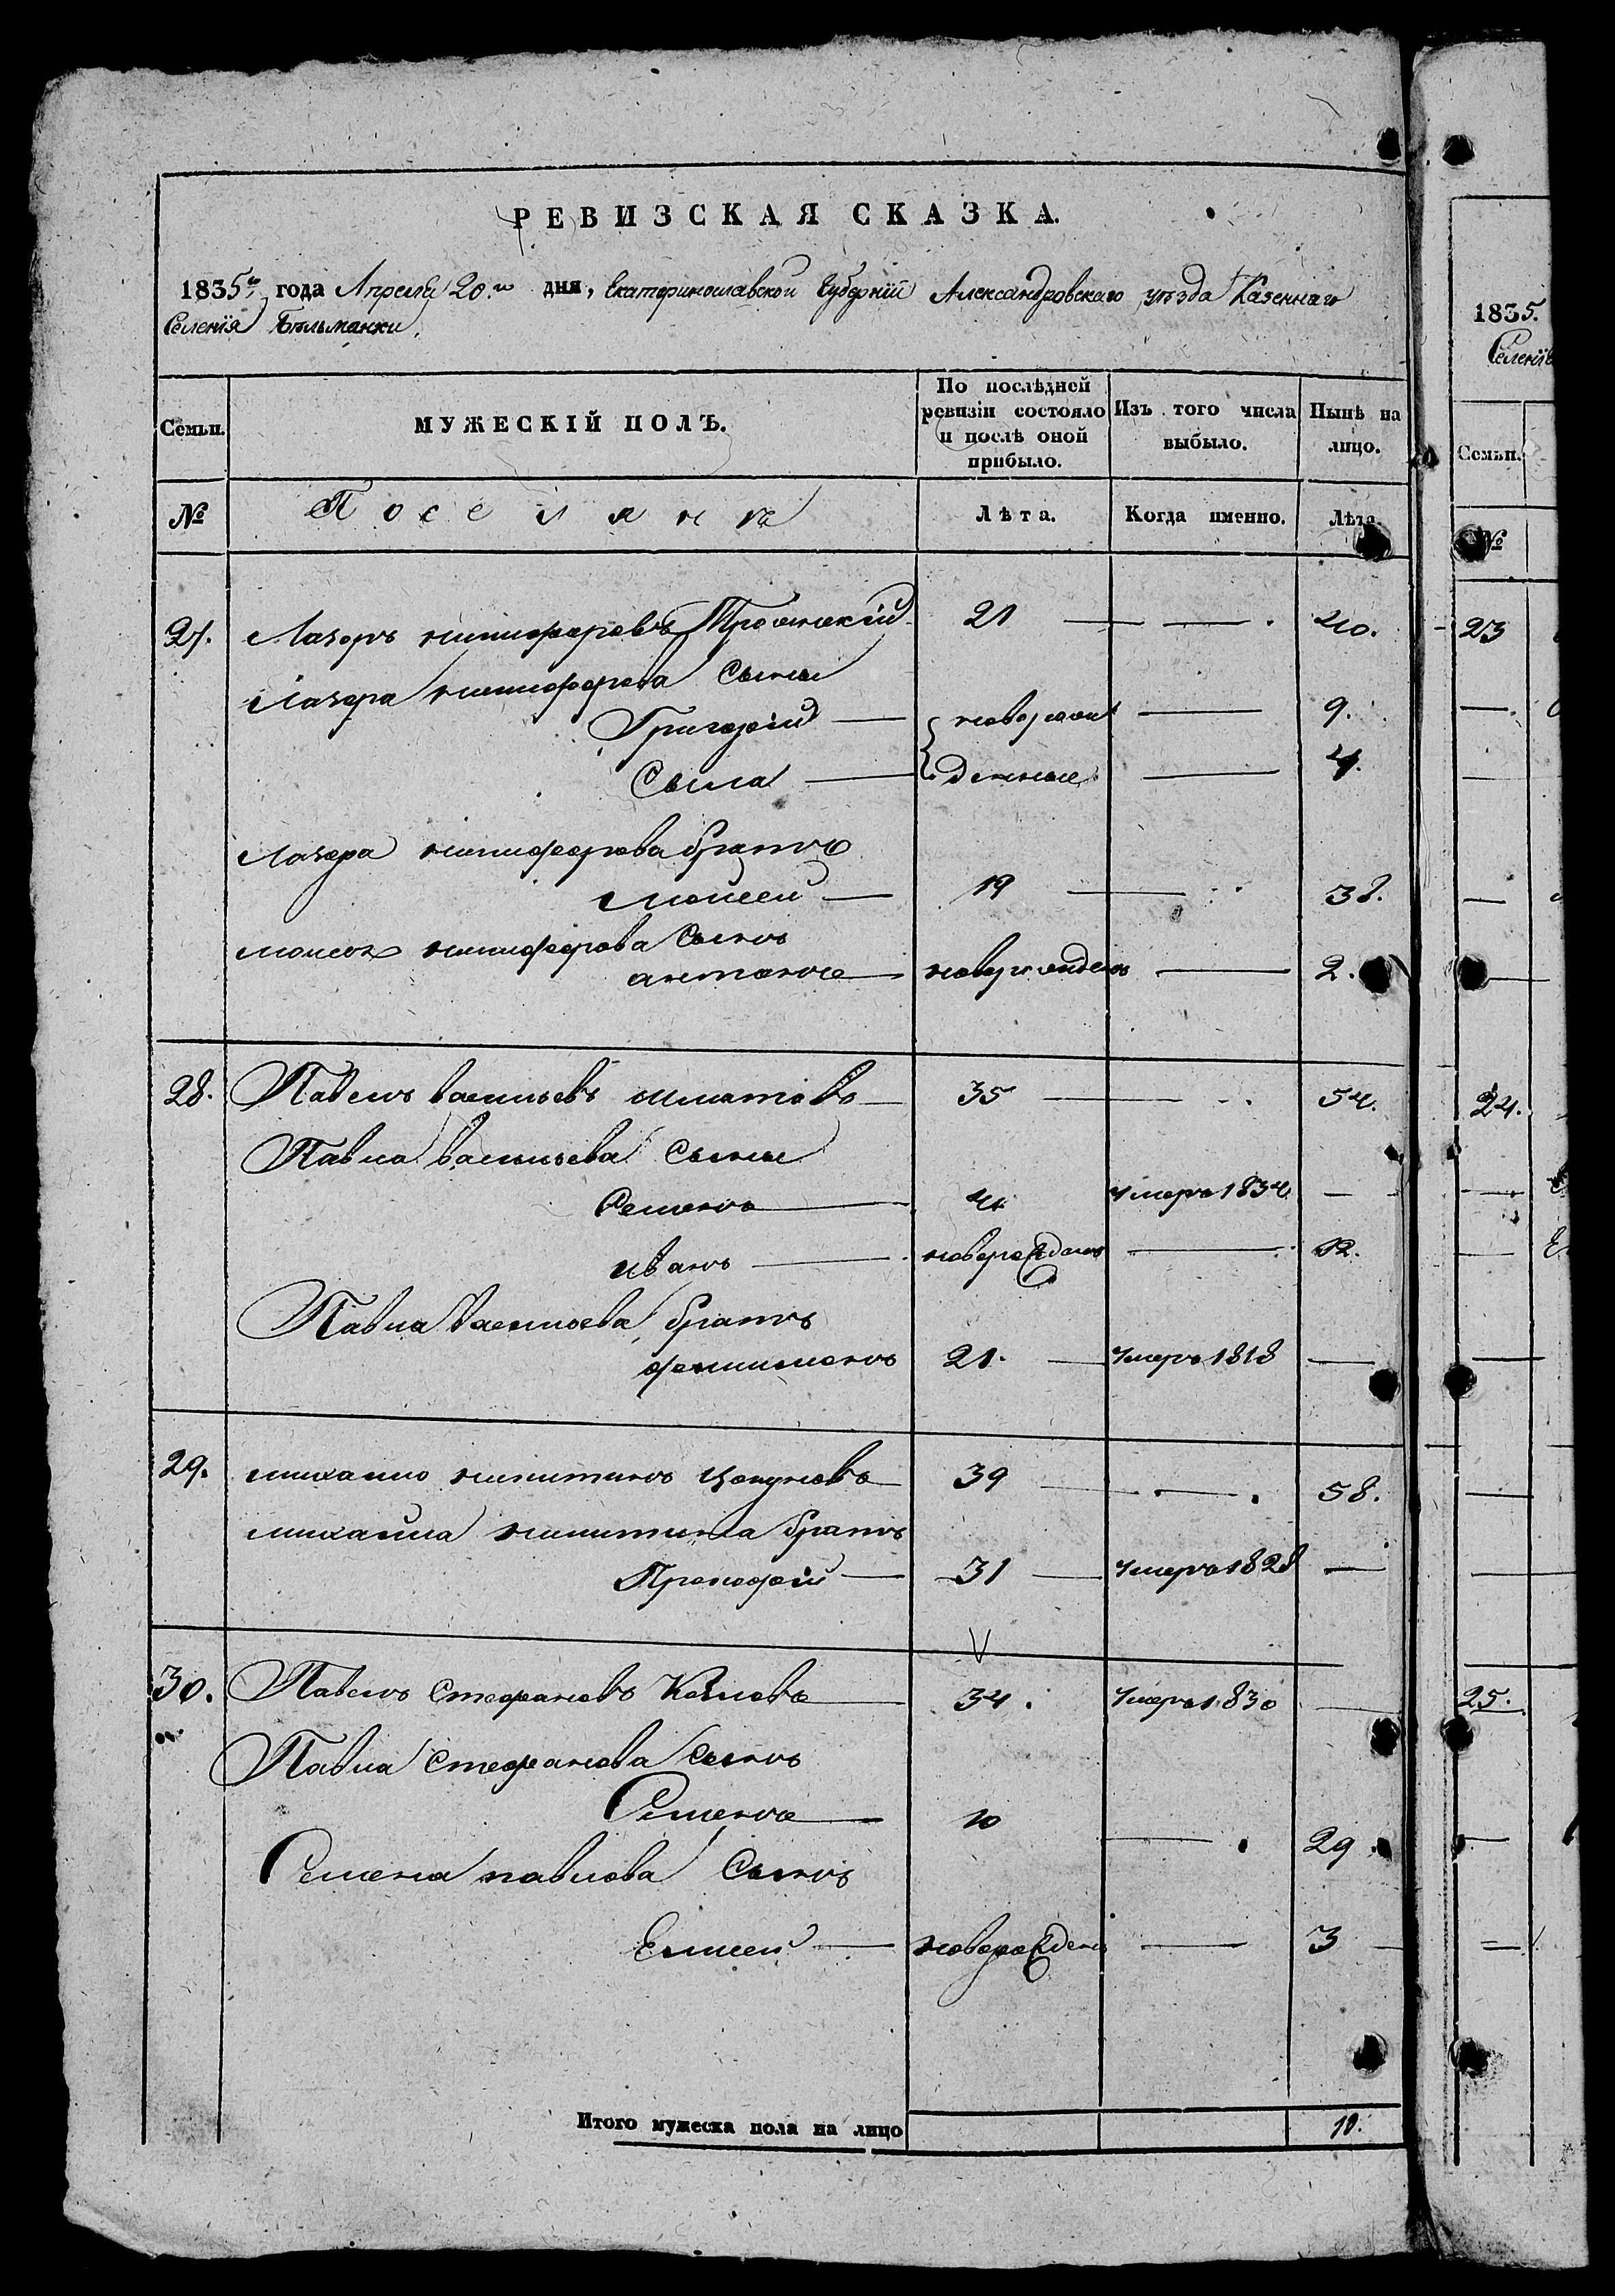 РЕВИЗСКАЯ СКАЗКА.
1835го года Апреля 20го дня, Екатеринославской Губернїи Александровскаго уѣзда Казеннаго
Селенїя Бѣльманки.
Семьи. МУЖЕСКІЙ ПОЛЪ. По послѣдней ревизіи состояло и послѣ оной прибыло. Изъ того числа выбыло. Нынѣ на лицо.
№ Поселянъ Лѣта. Когда именно. Лѣта.
27. Лазоръ никифоровъ 21 — — 40.
Лазора никифорова Сыны
Григорій — новорож — 9.
Сыла — денные — 4.
Лазора никифорова братъ
Моисей — 19 — 38.
моисея никифорова Сынъ
антонъ — новорожденъ — 2.
28. Павелъ васильевъ — 35 — 54.
Павла васильева Сыны
Семенъ — 4 умеръ 1834 —
иванъ — новорожденъ — 12.
Павла Васильева братъ
филимонъ 21. — умеръ 1818 —
29. михайло никитинъ — 39 — 58.
михайла никитина братъ
Прокофій — 31 — умеръ 1828 —
30. Павелъ Стефановъ Козловъ — 34. умеръ 1830 —
Павла Стефанова Сынъ
Семенъ — 10 — 29
Семена павлова Сынъ
Елисей — новорожденъ — 3
Итого мужеска пола на лицо 10.
1835.
Селенїя
Семьи.
№
23
24.
25.